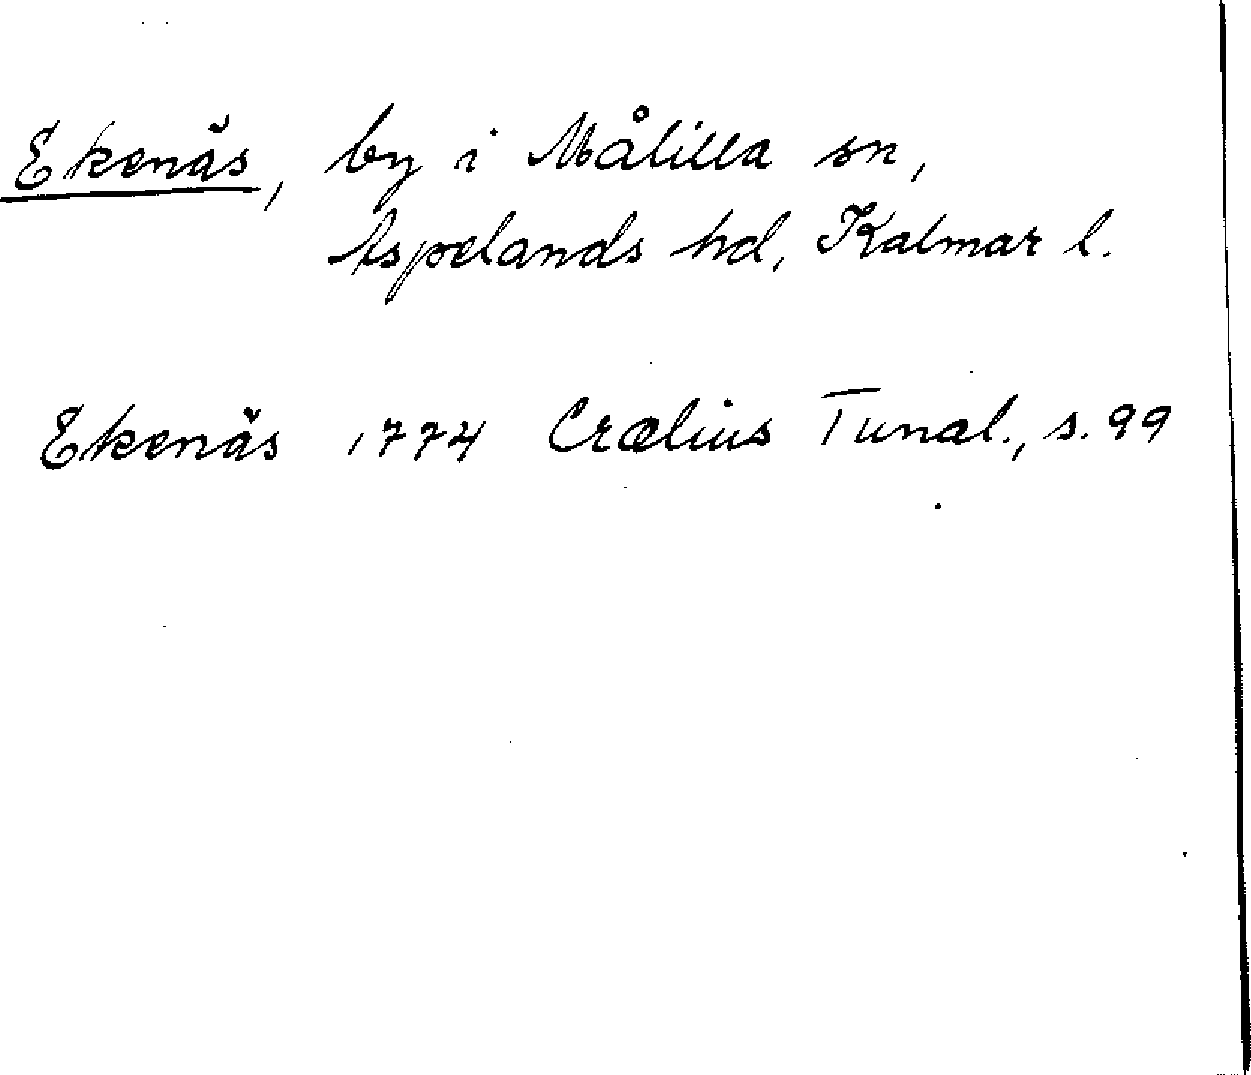 Ekenäs, by i Målilla sn,
Aspelands hd, Kalmar l.
Ekenäs 1774 Crælius Tunal., s. 99